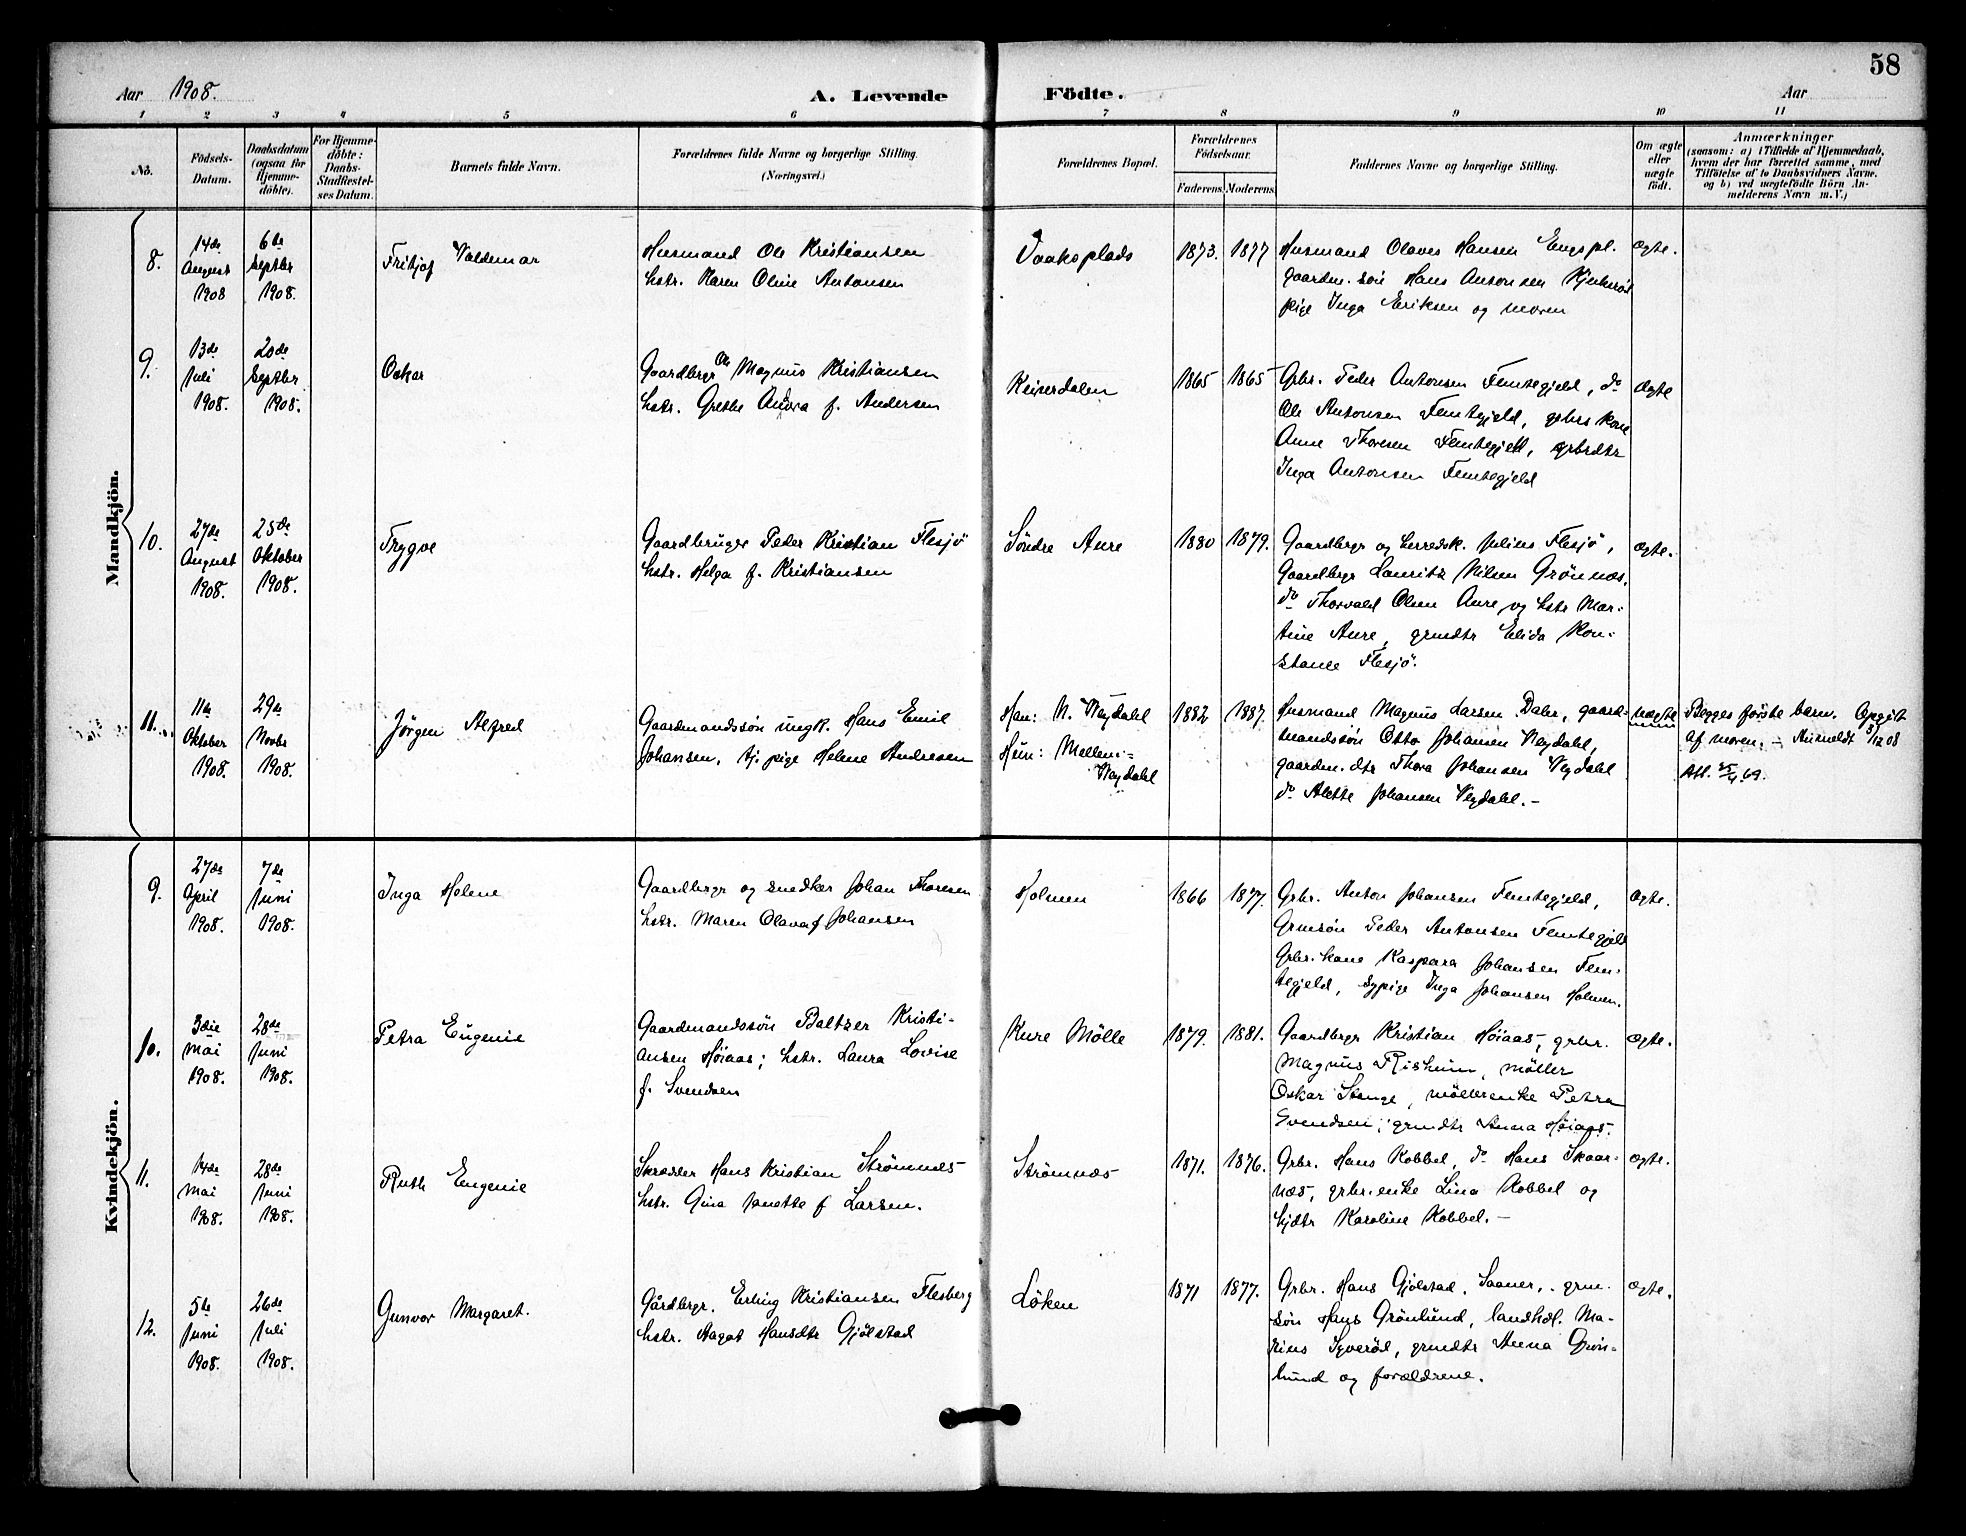 58
Aar 1908.
A. Levende Födte.
Aar
1 2 3 4 5 6 7 8 9 10 11
No.
Födsels-Datum.
Daabsdatum (ogsaa for Hjemme-döbte).
For Hjemme-döbte: Daabs-Stadfæstel-ses Datum.
Barnets fulde Navn.
Forældrenes fulde Navne og borgerlige Stilling.
(Næringsvei.)
Forældrenes Bopæl.
Forældrenes Födselsaar.
Faderens. Moderens.
Faddernes Navne og borgerlige Stilling.
Om ægte eller uægte födt.
Anmærkninger
(saasom: a) i Tilfælde af Hjemmedaab,
hvem der har forrettet samme, med
Tilföielse af to Daabsvidners Navne.
og b) ved uægtefödte Börn An-
melderens Navn m.V.)
Mandkjön.
8.
14de August 1908
6te Septbr 1908.
Fritjof Valdemar
Husmand Ole Kristiansen
hstr. Karen Oline Antonsen
Vaakoplads
1873. 1877
Husmand Olaves Hansen Engspl.
gaardm.sön Hans Antonsen
pige Inga Eriksen og moren
ægte.
9.
13de Juli 1908.
20de Septbr 1908.
Oskar
Gaardbrgr Ole Magnus Kristiansen
hstr. Grethe Andrea f. Andersen
Keiserdalen
1865 1865
Grbr. Peder Antonsen Femtegjeld, do
Ole Antonsen Femtegjeld, grbrs kone
Anne Thoresen Femtegjeld, grbrdtr
Inga Antonsen Femtegjeld
ægte
10.
27de August 1908.
25de Oktober 1908.
Trygve
Gaardbruger Peder Kristian Flesjö
hstr. Helga f. Kristiansen
Söndre Aure
1880 1879.
Gaardbrgr og herredsk. Julius Flesjö,
Gaardbrgr Lauritz Nilsen Grönnæs,
do Thorvald Olsen Aure og hstr Mar-
tine Aure, grmdtr Elida Kon-
stance Flesjö.
ægte.
11.
11te Oktober 1908.
29de Novbr 1908.
Jörgen Alfred
Gaardmandssön ungk. Hans Emil
Johansen, tj. pige Helene Andresen
Han: N. Vegdahl
Hun: Mellem-
Vegdahl
1882 1887.
Husmand Magnus Larsen Daler, gaard-
mandssön Otto Johansen Vegdahl,
gaardm.dtr Thora Johansen Vegdahl
do Alette Johansen Vegdahl.-
uægte
Begges förste barn. Opgit
af moren. - Anmeldt 3/12 08
Kvindekjön.
9.
27de April 1908.
7de Juni 1908.
Inga Helene
Gaardbrgr og snedker Johan Thoresen
hstr. Maren Olava f Johansen
Holmen
1866 1877.
Grbr. Anton Johansen Femtegjeld,
Grmsön Peder Antonsen Femtegjeld
Grbr.kone Kaspara Johansen Fem-
tegjeld, sypige Inga Johansen Holmen.
ægte.
10.
3die Mai 1908.
28de Juni 1908.
Petra Eugenie
Gaardmandssön Baltzer Kristi-
ansen Höiaas; hstr. Laura Lovise
f. Svendsen
Kure Mölle
1879. 1881.
Gaardbrgr Kristian Höiaas, grbr.
Magnus Risheim, möller
Oskar Stange, möllerenke Petra
Svendsen, grmdtr Anna Höiaas.
ægte.
11.
14de Mai 1908.
28de Juni 1908.
Ruth Eugenie
Skræder Hans Kristian Strömnes
hstr. Gina Janette f Larsen.
Strömnæs
1871. 1876.
Grbr. Hans Kobbel, do Hans Skaar-
næs, grbr.enke Lina Kobbel og
hjdtr Karoline Kobbel.-
ægte.
12.
5te Juni 1908.
26de Juli 1908.
Gunvor Margaret.
Gårdbrgr. Erling Kristiansen Flesberg
hstr. Aagot Hansdtr Gjölstad
Löken
1871 1877.
Grbr. Hans Gjölstad, Saaner, grm-
sön Hans Grönlund, landhdl. Ma-
rius Syveröd, grmdtr Anna Grön-
lund og forældrene.
ægte.